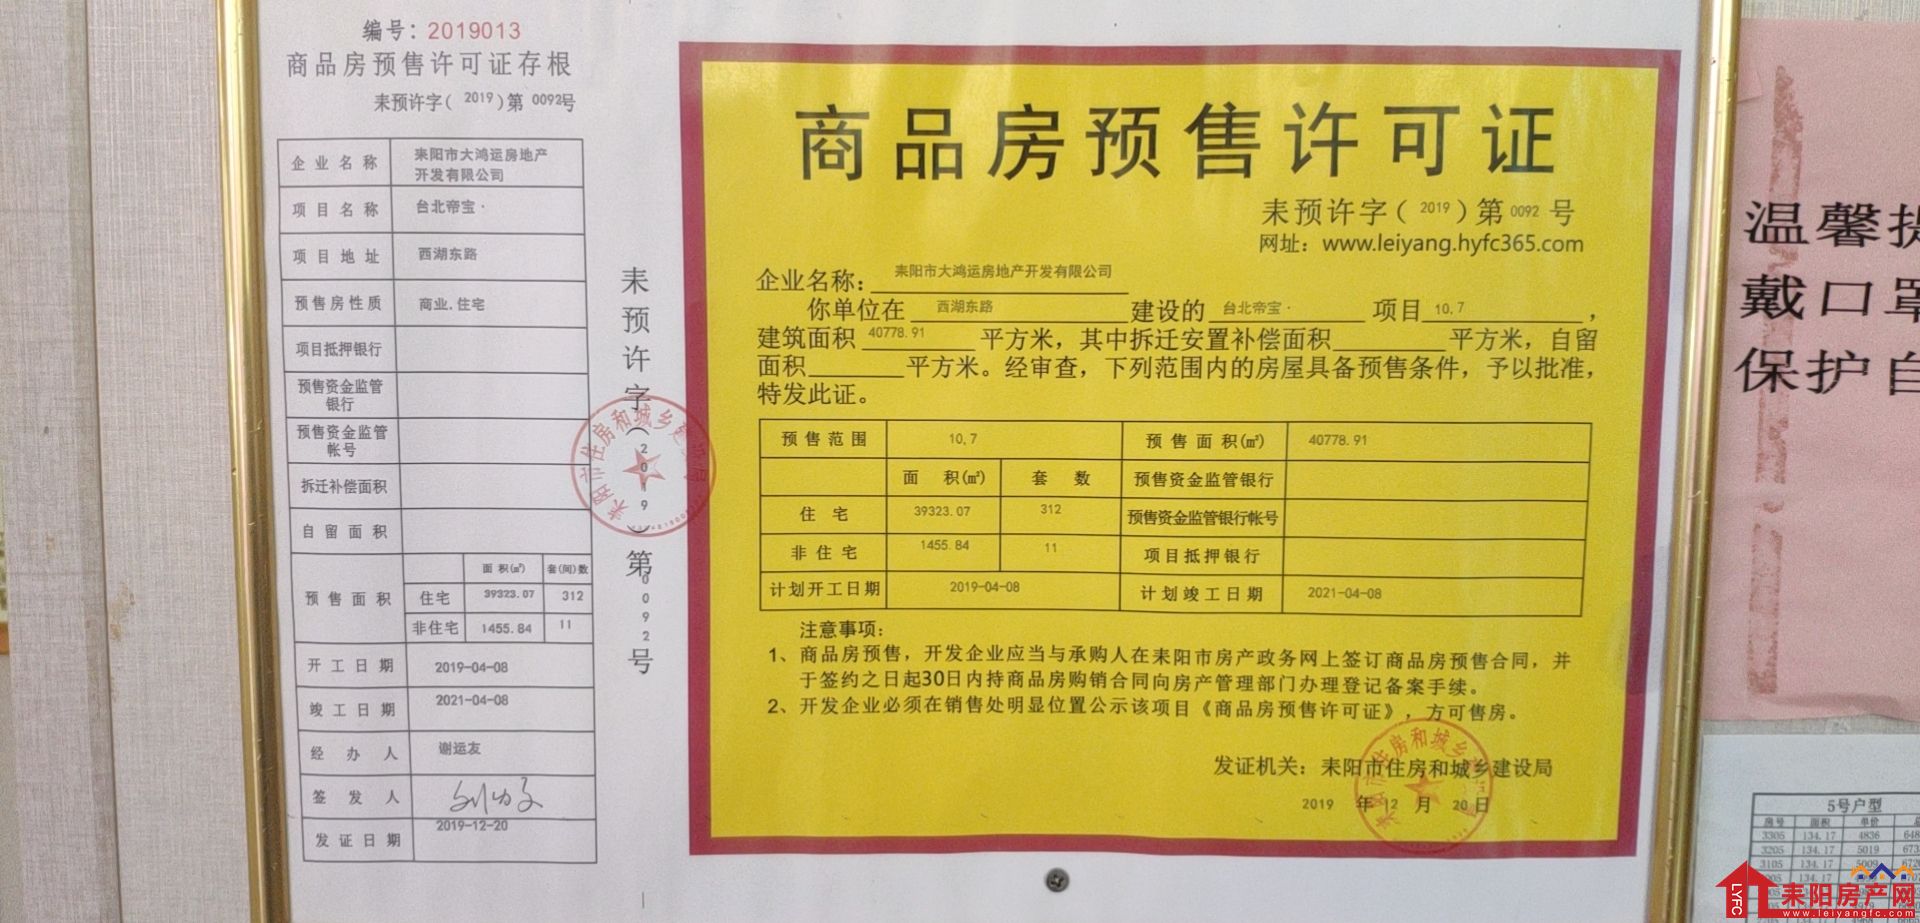 编号：2019013
商品房预售许可证存根
耒预许字（2019）第0092号
企业名称 耒阳市大鸿运房地产开发有限公司
项目名称 台北帝宝·
项目地址 西湖东路
预售房性质 商业.住宅
项目抵押银行
预售资金监管银行
预售资金监管帐号
拆迁补偿面积
自留面积
预售面积 面积(㎡) 套(间)数
住宅 39323.07 312
非住宅 1455.84 11
开工日期 2019-04-08
竣工日期 2021-04-08
经办人 谢运友
签发人
发证日期 2019-12-20
耒预许字（2019）第0092号
商品房预售许可证
耒预许字（2019）第0092号
网址：www.leiyang.hyfc365.com
企业名称：耒阳市大鸿运房地产开发有限公司
你单位在 西湖东路 建设的 台北帝宝· 项目 10,7 ，
建筑面积 40778.91 平方米，其中拆迁安置补偿面积 平方米，自留
面积 平方米。经审查，下列范围内的房屋具备预售条件，予以批准，
特发此证。
预售范围 10,7 预售面积(㎡) 40778.91
面积(㎡) 套数 预售资金监管银行
住宅 39323.07 312 预售资金监管银行帐号
非住宅 1455.84 11 项目抵押银行
计划开工日期 2019-04-08 计划竣工日期 2021-04-08
注意事项：
1、商品房预售，开发企业应当与承购人在耒阳市房产政务网上签订商品房预售合同，并
于签约之日起30日内持商品房购销合同向房产管理部门办理登记备案手续。
2、开发企业必须在销售处明显位置公示该项目《商品房预售许可证》，方可售房。
发证机关：耒阳市住房和城乡建设局
2019 年 12 月 20 日
温馨提
戴口罩
保护自
5号户型
房号 面积 单价
3305 134.17 4836
3205 134.17 5019
3105 134.17 5009
LYFC
耒阳房产网
www.leiyangfc.com